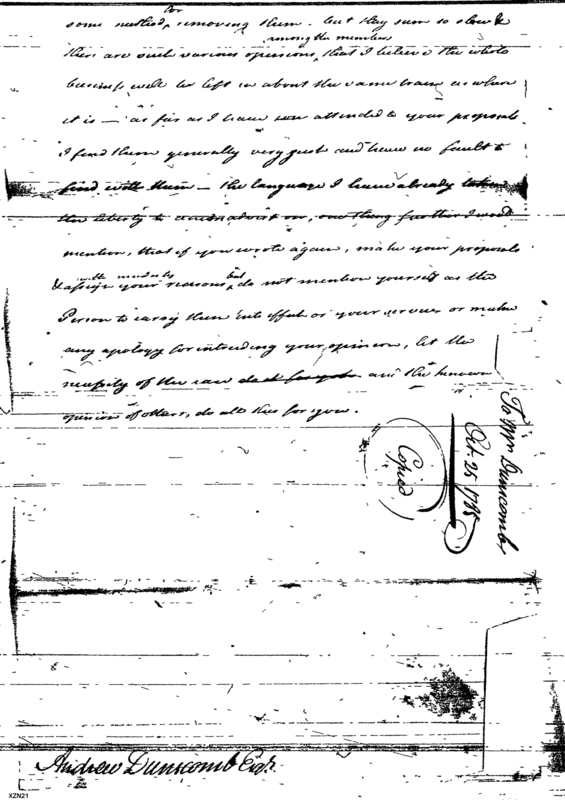 for
some method, removing them. but they seem so slow &
among the members
there are such various opinions, that I believe the whole
business will be left in about the same train as when
it is — as far as I have attended to your proposals
I find them generally very just and have no fault to
find with them — the language I have already taken
the liberty to on, one thing further I wod
mention, that if you wrote again, make your proposals
with modesty but
& assign your reasons, do not mention yourself as the
Person to carry them into effect or your services or make
any apology for intruding your opinion, let the
necessity of the case and the known
opinion of others, do all this for you.
To Mr Dunscomb,
Oct. 25 1785
Copied
Andrew Dunscomb Esqr.
XZN21